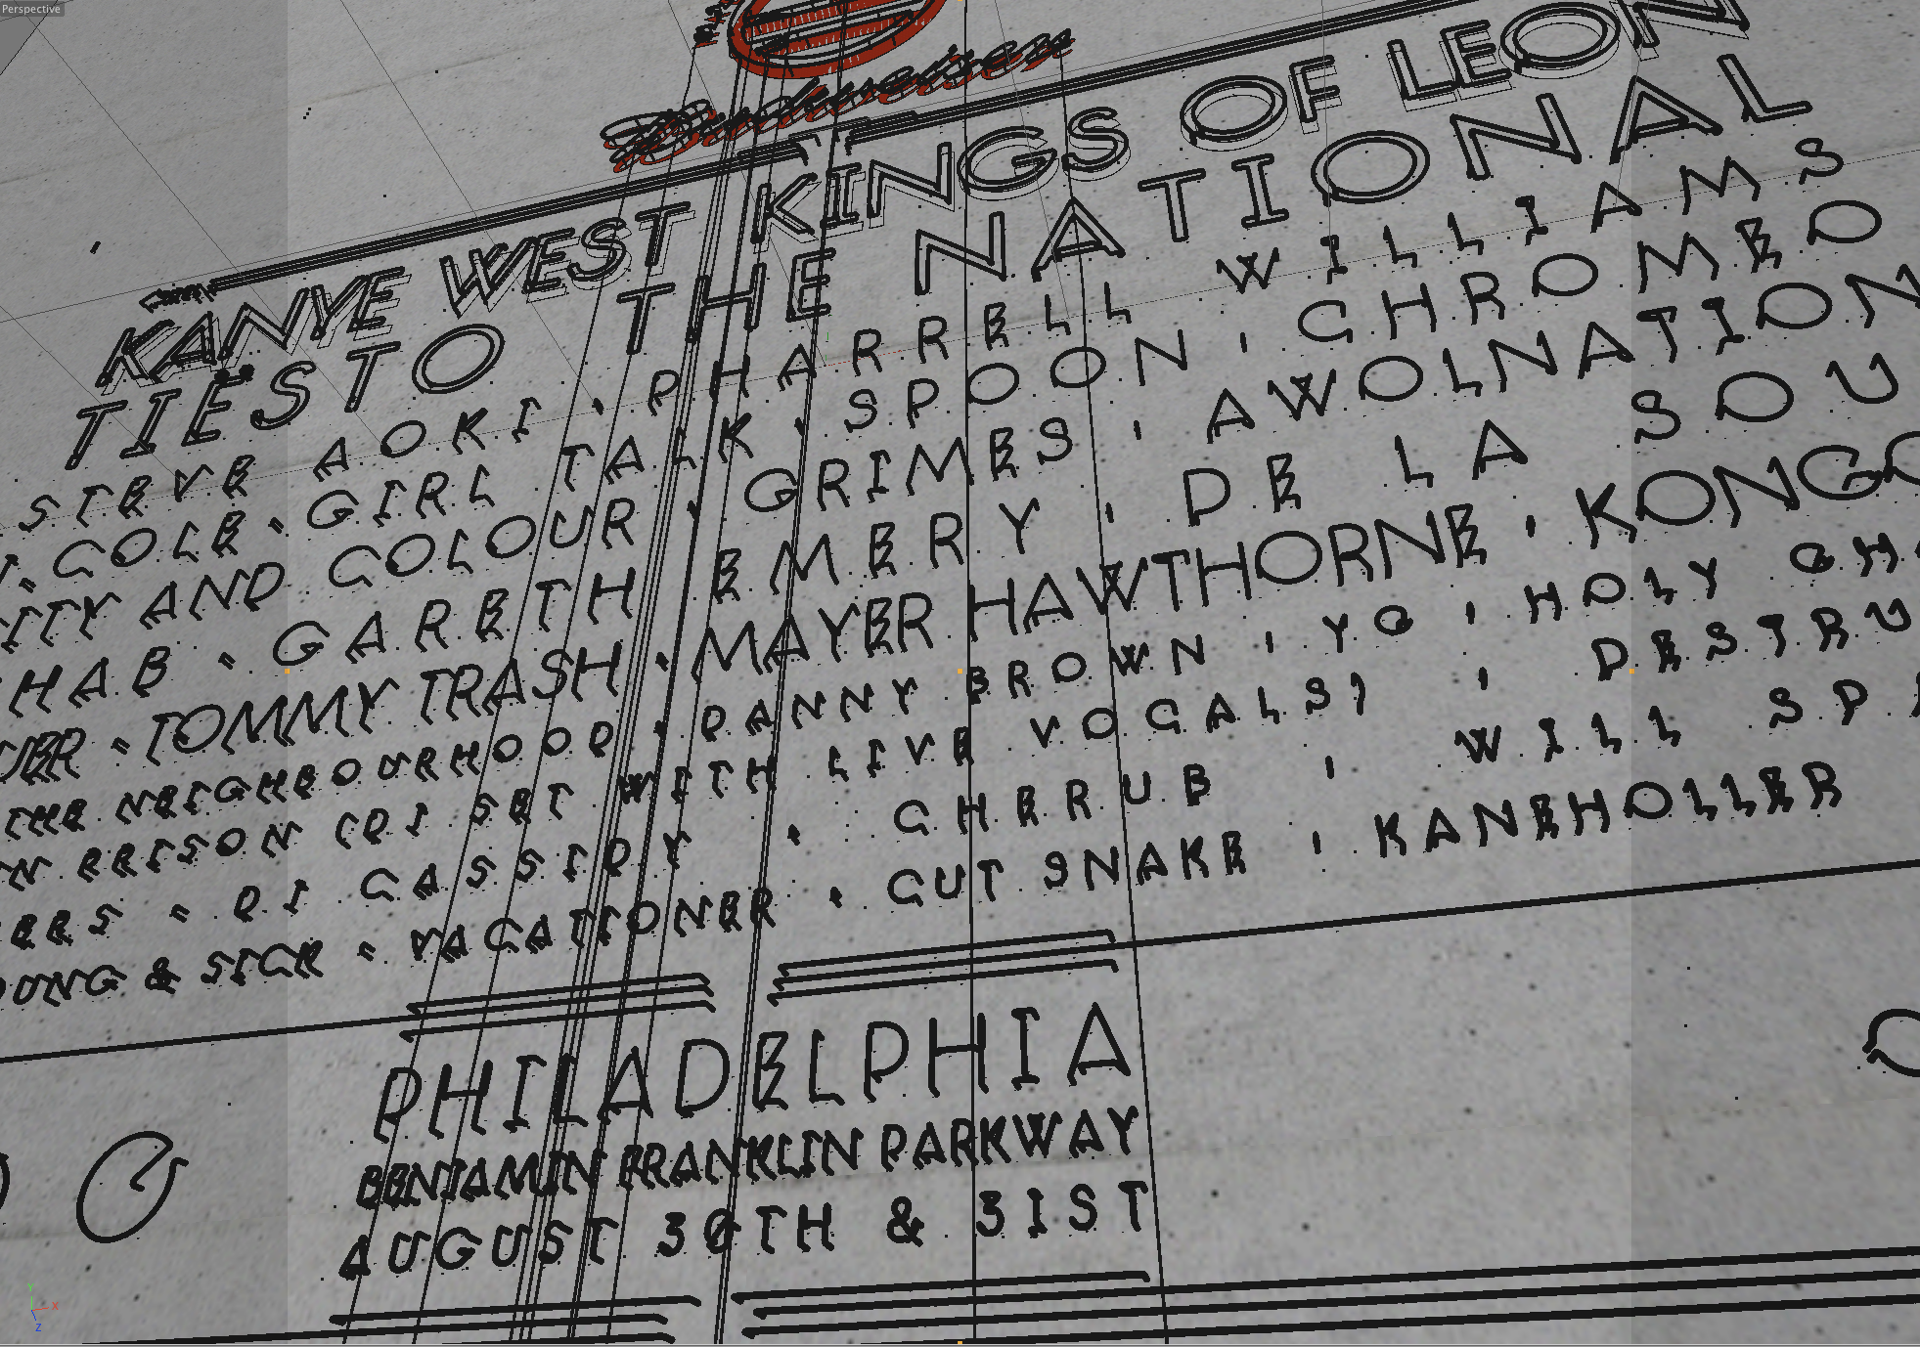 Perspective
Budweiser
KANYE WEST KINGS OF LEON
TIËSTO THE NATIONAL
STEVE AOKI · PHARRELL WILLIAMS
COLE · GIRL TALK · SPOON · CHROMEO
CITY AND COLOUR · GRIMES · AWOLNATION
HAB · GARETH EMERY · DE LA SOU
TOMMY TRASH · MAYER HAWTHORNE · KONGO
THE NEIGHBOURHOOD · DANNY BROWN · YG · HOLY GH
N BEISON (DJ SET WITH LIVE VOCALS) · DESTRU
EERS · DJ CASSIDY · CHERUB · WILL SPA
OUNG & SICK · VACATIONER · CUT SNAKE · KANEHOLLER
PHILADELPHIA
BENJAMIN FRANKLIN PARKWAY
AUGUST 30TH & 31ST
G
Y
X
Z